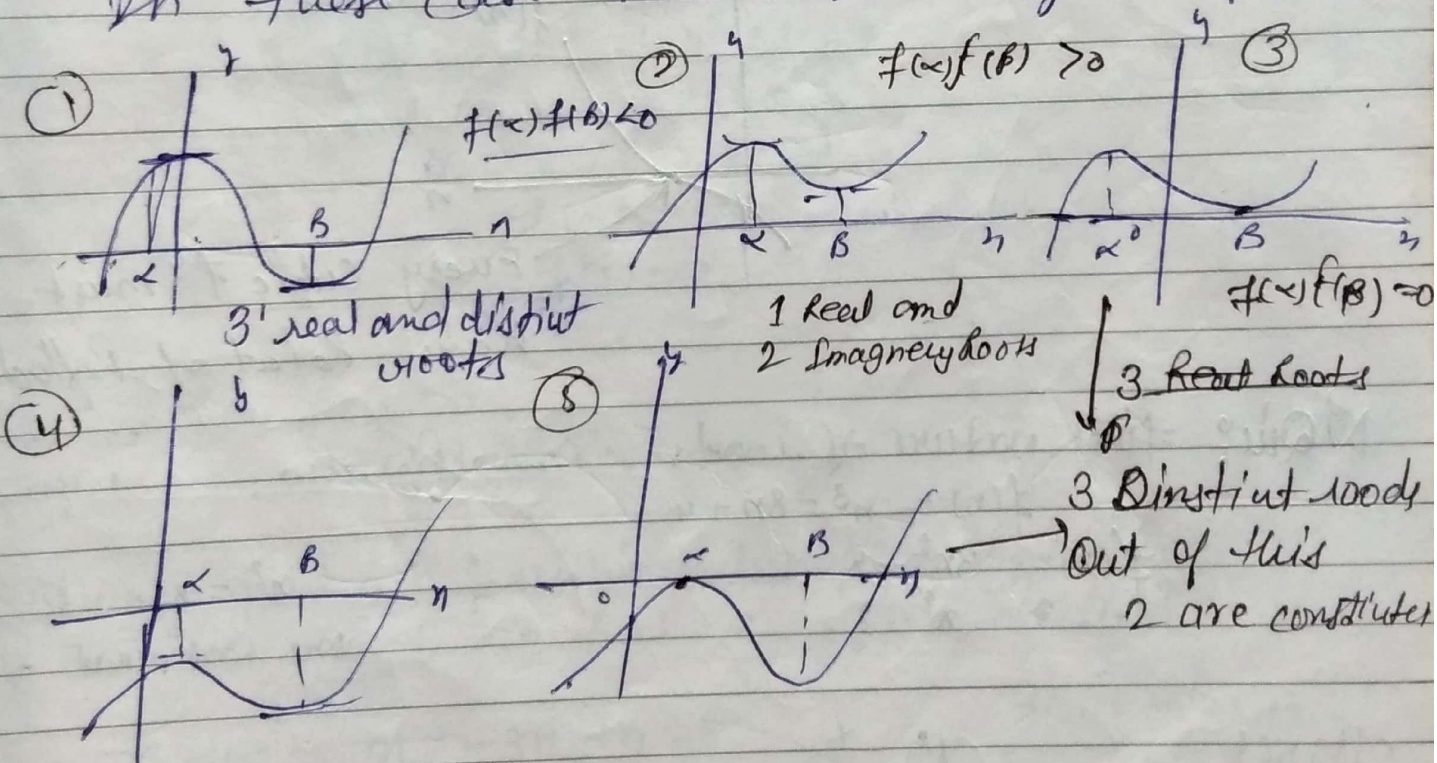 ①
y
f(α) f(β) <0
β
n
α
3 real and distiut
roots
②
y
f(α) f(β) >0
α
β
n
1 Real and
2 Imagnery Roots
y
③
α
0
β
n
f(α) f(β) =0
3 Real Roots
3 Dinstiut roods
Out of this
2 are
④
α
β
n
⑤
y
α
β
0
n